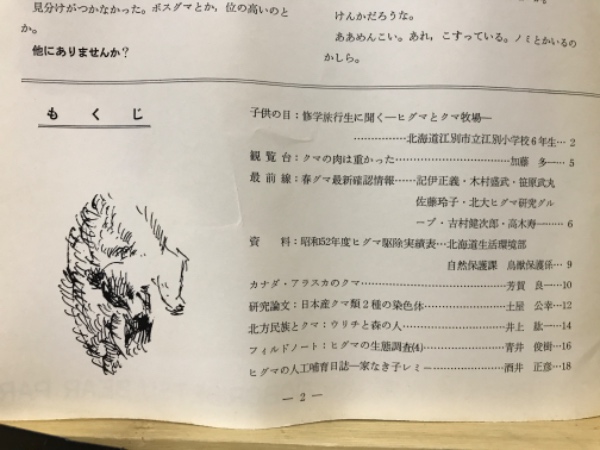 見分けがつかなかった。ボスグマとか，位の高いのと
か。
他にありませんか？
けんかだろうな。
ああめんこい。あれ，こすっている。ノミとかいるの
かしら。
もくじ
子供の日：修学旅行生に聞く―ヒグマとクマ牧場―
……………北海道江別市立江別小学校6年生… 2
観覧台：クマの肉は重かった……………………………加藤 多…… 5
最前線：春グマ最新確認情報……記伊正義・木村盛武・笹原武丸
佐藤玲子・北大ヒグマ研究グル
ープ・古村健次郎・高木寿……… 6
資料：昭和52年度ヒグマ駆除実績表…北海道生活環境部
自然保護課 鳥獣保護係… 9
カナダ・アラスカのクマ……………………………………芳賀 良一……10
研究論文：日本産クマ類2種の染色体……………………土屋 公幸…12
北方民族とクマ：ウリチと森の人…………………………井上 紘一……14
フィルドノート：ヒグマの生態調査(4)……………………青井 俊樹…16
ヒグマの人工哺育日誌―家なき子レミ―…………………酒井 正彦…18
― 2 ―